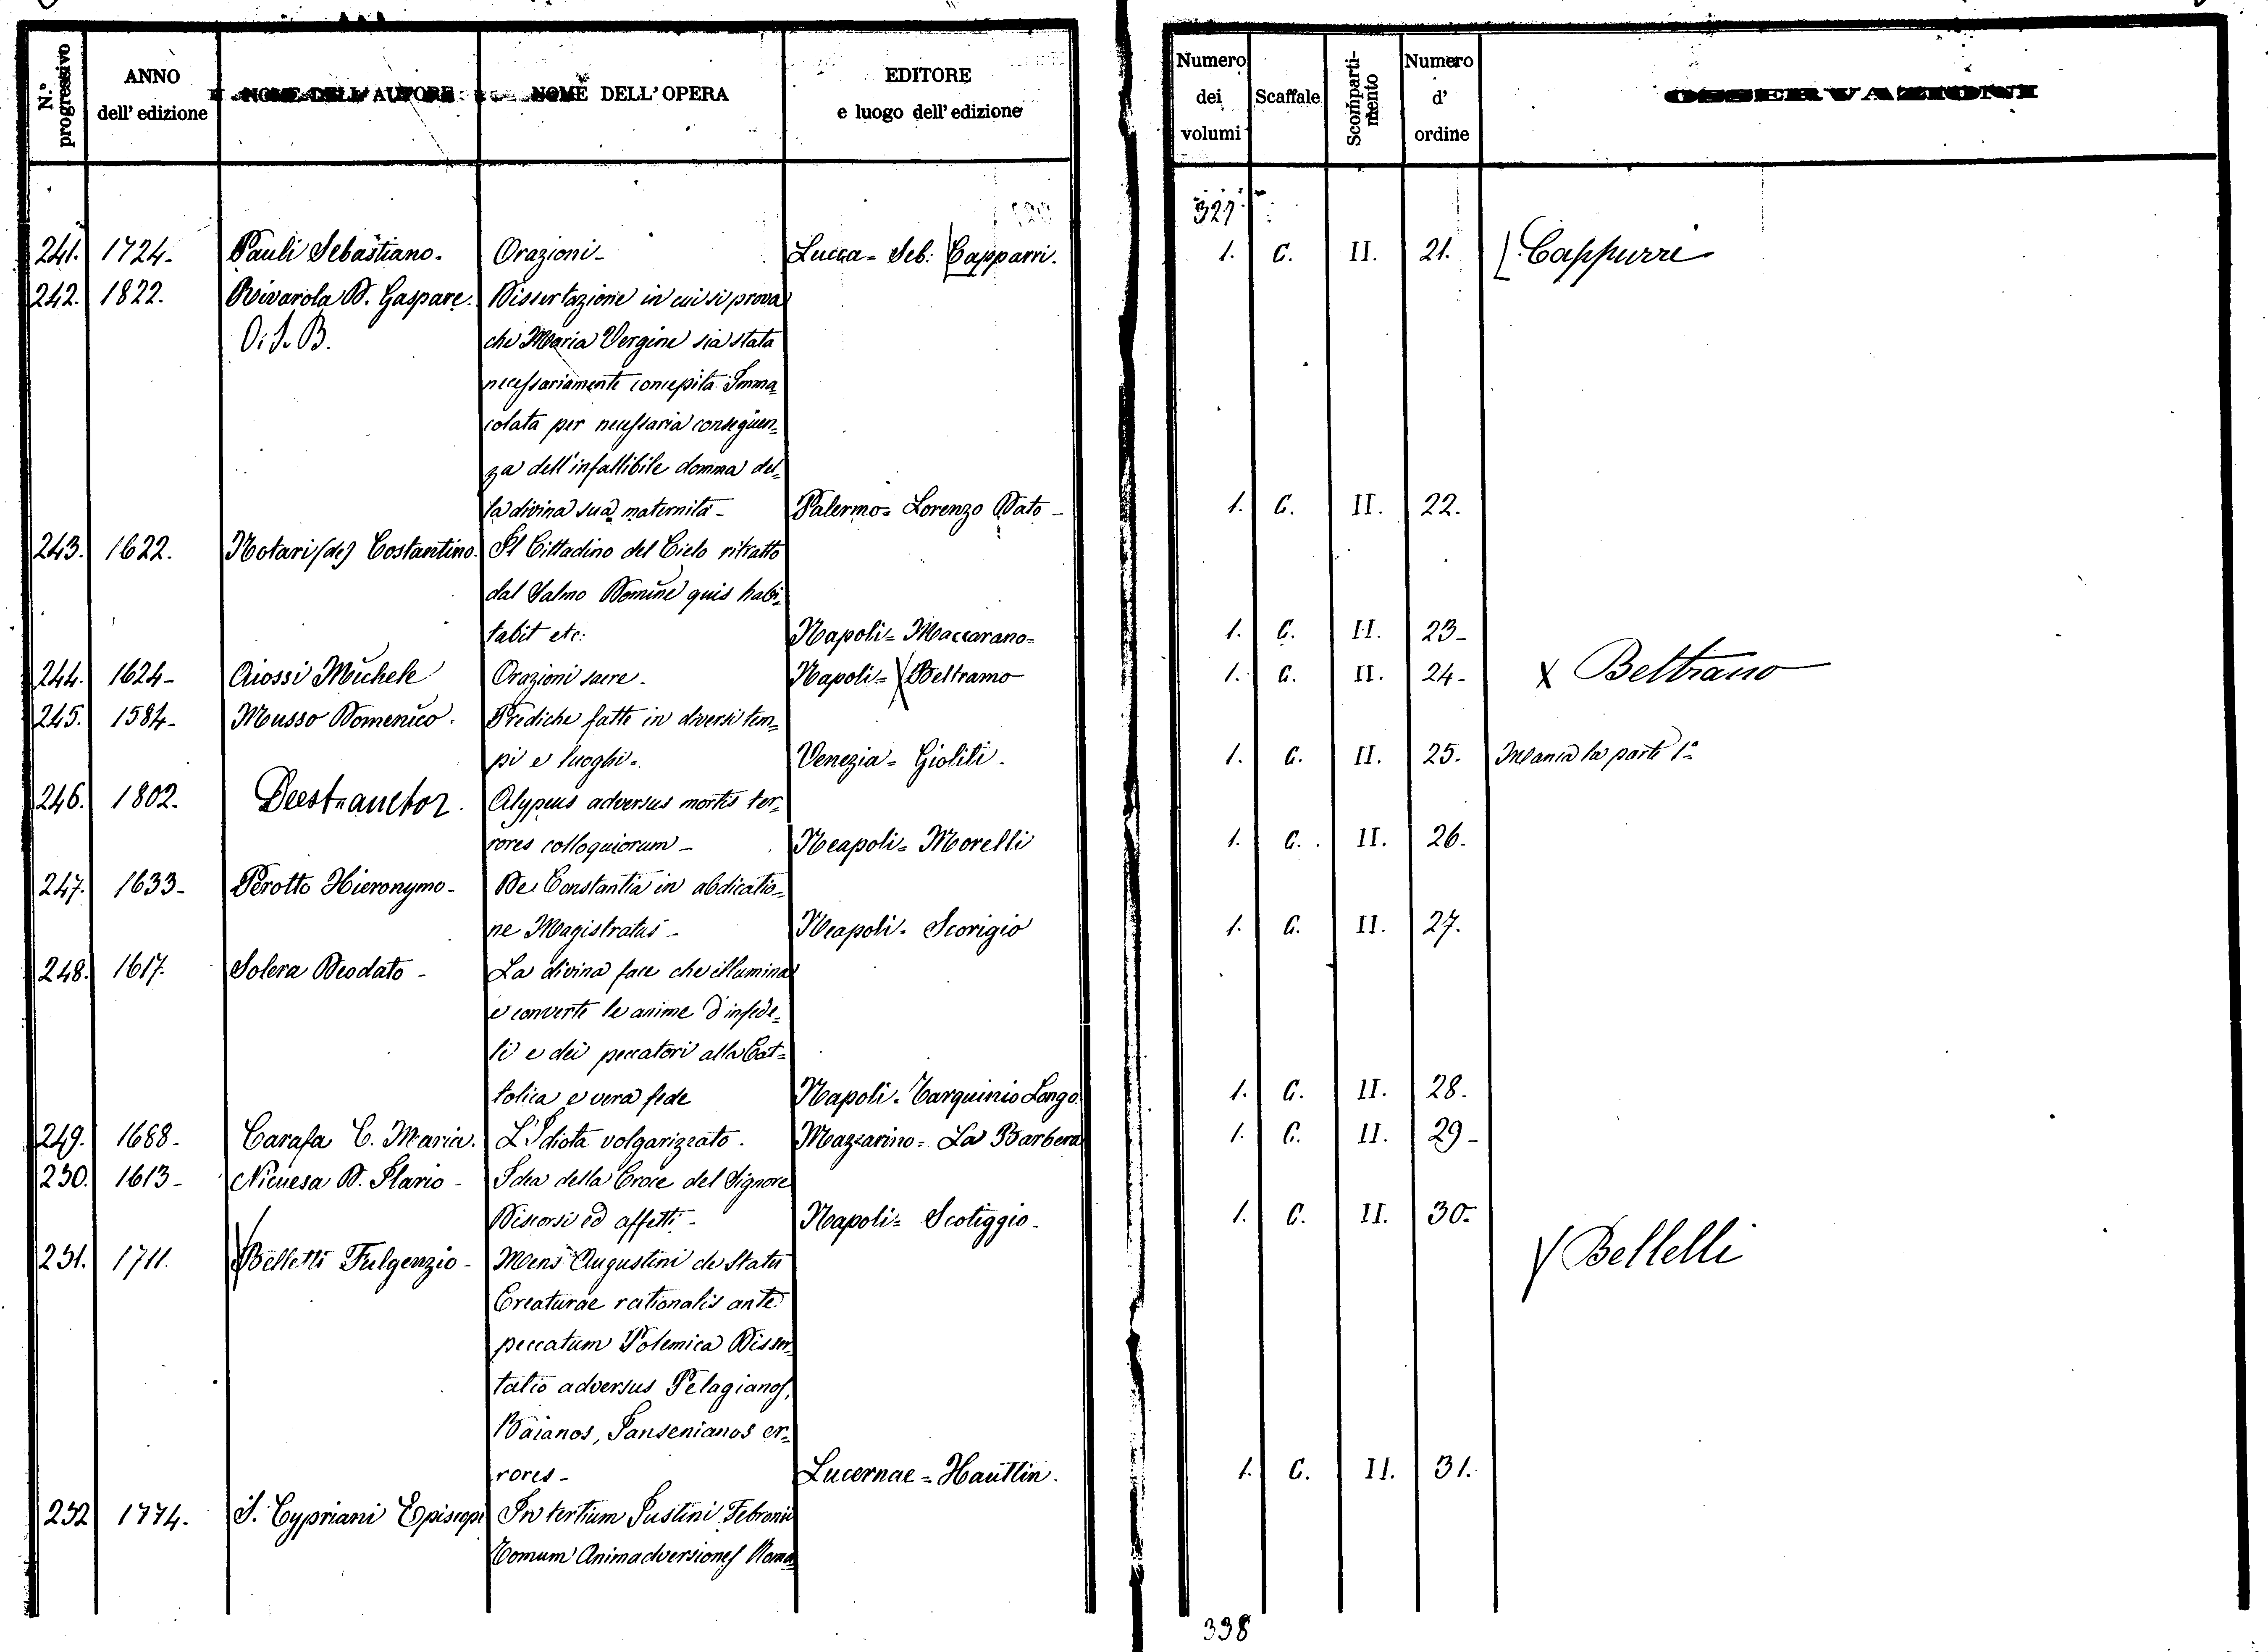 N.° progressivo
ANNO dell' edizione
NOME DELL' AUTORE
NOME DELL' OPERA
EDITORE e luogo dell' edizione
Numero dei volumi
Scaffale
Scompartimento
Numero d' ordine
OSSERVAZIONI
327
241. 1724- Pauli Sebastiano. Orazioni- Lucca= Seb: Capparri. 1. C. II. 21. Cappurri
242. 1822. Rivarola D. Gaspare. Dissertazione in cui si prova
O. S. B. che Maria Vergine sia stata
necessariamente concepita Imma=
colata per necessaria conseguen=
za dell'infallibile domma del=
la divina sua maternità- Palermo= Lorenzo Dato- 1. C. II. 22.
243. 1622. Notari (de) Costantino. Il Cittadino del Cielo ritratto
dal Salmo Domine quis habi=
tabit etc: Napoli= Maccarano= 1. C. II. 23-
244. 1624- Aiossi Michele Orazioni sacre. Napoli= X Beltramo 1. C. II. 24- X Beltrano
245. 1584- Musso Domenico. Prediche fatte in diversi tem=
pi e luoghi=. Venezia= Gioliti. 1. C. II. 25. Manca la parte 1ª
246. 1802. Deest auctor. Alypius adversus mortis ter=
rores colloquiorum- Neapoli= Morelli 1. C. II. 26.
247. 1633- Perotto Hieronymo- De Constantia in abdicatio=
ne Magistratus- Neapoli= Scorigio 1. C. II. 27.
248. 1617. Solera Deodato- La divina face che illumina
e converte le anime d'infede=
li e dei peccatori alla Cat=
tolica e vera fede Napoli= Tarquinio Longo. 1. C. II. 28.
249. 1688- Carafa C. Maria. L'Idiota volgarizzato. Mazzarino= La Barbera 1. C. II. 29-
250. 1613- Nicuesa D. Ilario- Idea della Croce del Signore
Discorsi ed affetti- Napoli= Scotiggio- 1. C. II. 30.
251. 1711. Belletti Fulgenzio- Mens Augustini de Statu X Bellelli
Creaturae rationalis ante
peccatum Polemica Disser=
tatio adversus Pelagianos,
Baianos, Jansenianos er=
rores- Lucernae= Hautlin. 1. C. II. 31.
252 1774. S. Cypriani Episcopi In tertium Justini Febronii
Tomum Animadversiones Roma=
338